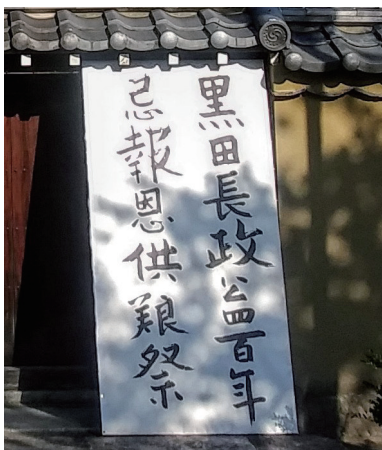 黒田長政公四百年
忌報恩供養祭